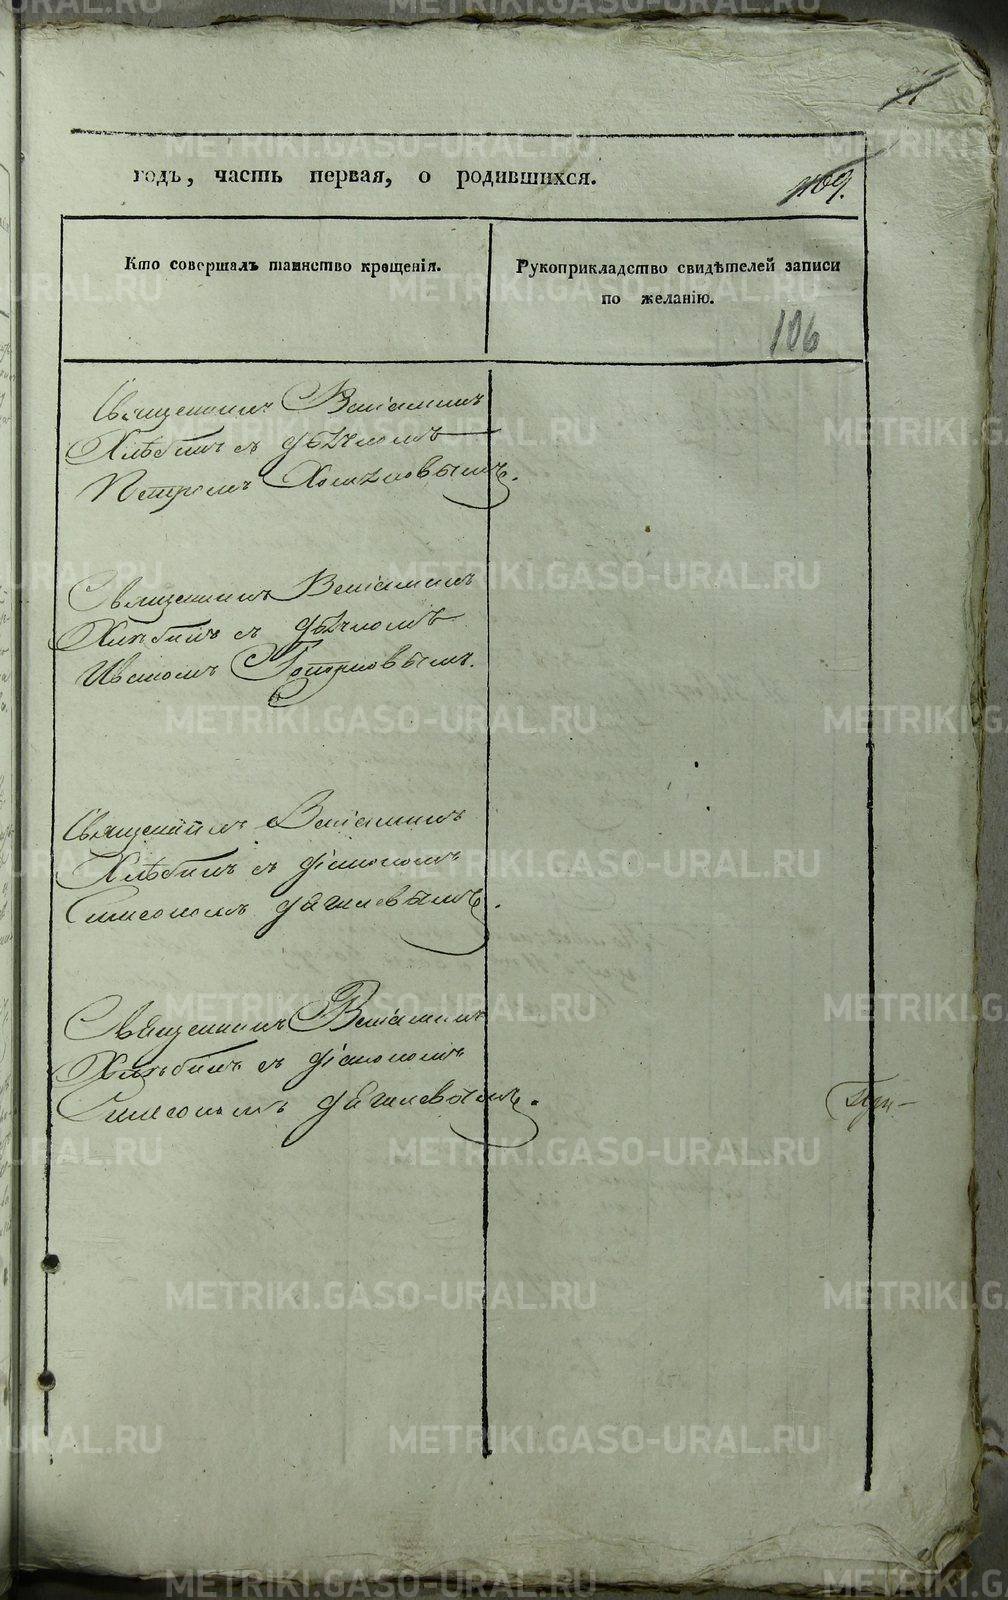 годъ, часть первая, о родившихся.
109.
Кто совершалъ таинство крещенія.
Рукоприкладство свидѣтелей записи
по желанію.
106
Священникъ Веніаминъ
Хлѣбинъ съ дьячкомъ
Петромъ Хомяковымъ.
Священникъ Веніаминъ
Хлѣбинъ съ дьячкомъ
Иваномъ Топорковымъ.
Священникъ Веніаминъ
Хлѣбинъ съ діакономъ
Симеономъ Дягилевымъ.
Священникъ Веніаминъ
Хлѣбинъ съ діакономъ
Симеономъ Дягилевымъ.
METRIKI.GASO-URAL.RU